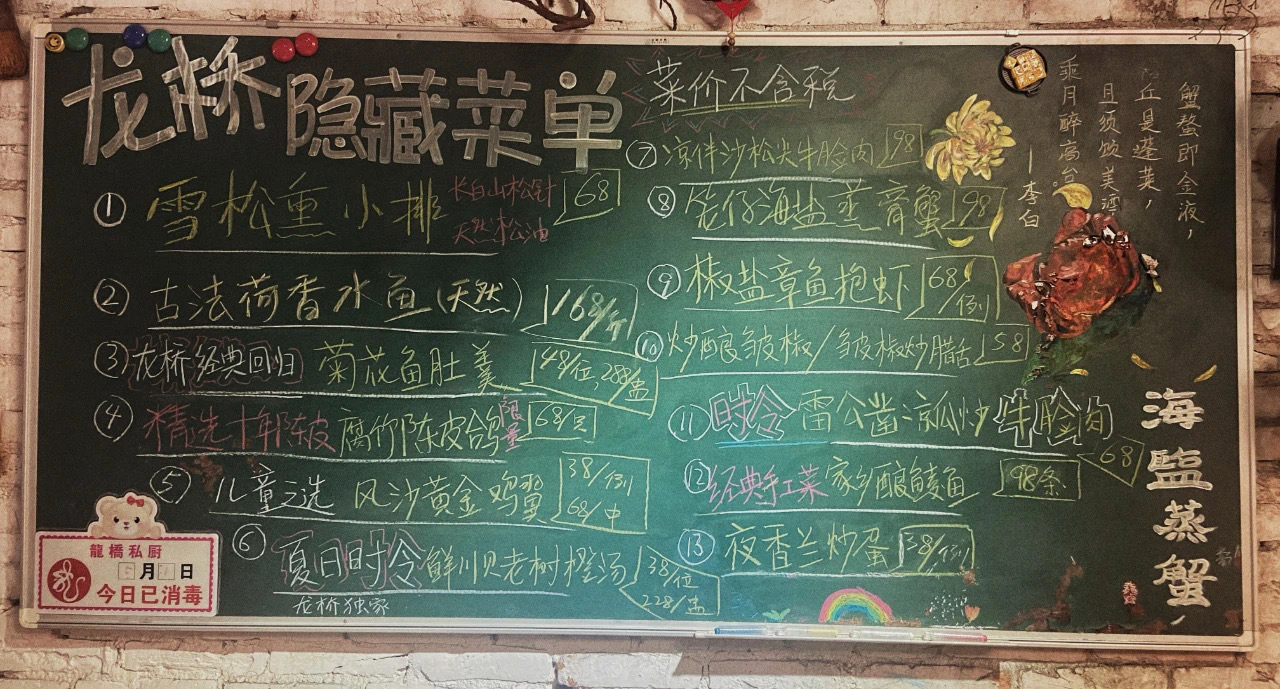 龙桥 隐藏菜单
① 雪松熏小排 长白山松针 天然松油 68
② 古法荷香水鱼(天然) 168/斤
③ 龙桥经典回归 菊花鱼肚羹 48/位,288/盅
④ 精选十年陈皮 腐竹陈皮鸽 限量 68/只
⑤ 儿童之选 风沙黄金鸡翼 38/例 68/中
⑥ 夏日时令 鲜川贝老树橙汤 38/位 228/盅
龙桥独家
菜价不含税
⑦ 凉伴沙松尖牛脸肉 98
⑧ 笼仔海盐蒸膏蟹 198
⑨ 椒盐章鱼抱虾 68/例
⑩ 炒酿皱椒/皱皮椒炒腊舌 58
⑪ 时令 雷公凿凉瓜炒牛脸肉 68
⑫ 经典手工菜 家乡酿鲮鱼 98条
⑬ 夜香兰炒蛋 38/例
蟹螯即金液,
丘是蓬莱,
且须饮美酒
乘月醉高台
—李白
海盐蒸蟹
龍橋私厨
月 日
今日已消毒